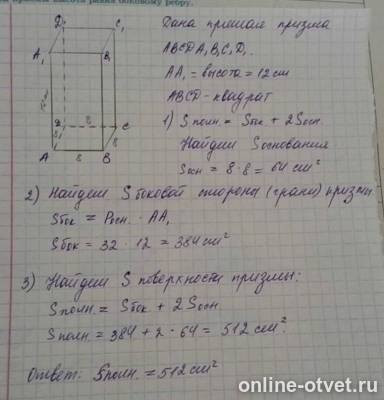 высота равна боковому ребру.
Дана прямая призма
ABCDA₁B₁C₁D₁
AA₁ = высота = 12 см
ABCD - квадрат
1) Sполн. = Sбок + 2Sосн.
Найдем Sоснования
Sосн = 8 · 8 = 64 см²
D₁ C₁
A₁ B₁
D C
8 8
A 8 B
2) Найдем S боковой стороны (грани) призмы.
Sбок = Pосн. · AA₁
Sбок = 32 · 12 = 384 см²
3) Найдем S поверхности призмы:
Sполн. = Sбок + 2 Sосн.
Sполн. = 384 + 2 · 64 = 512 см².
Ответ: Sполн. = 512 см²
online-otvet.ru